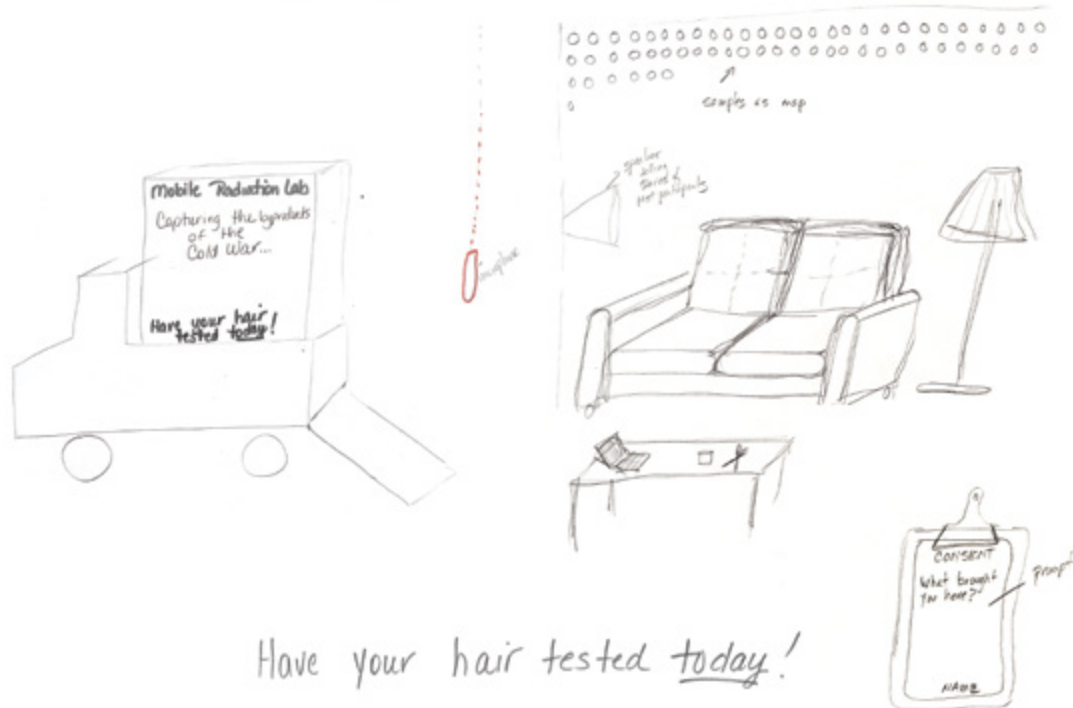 Mobile Radiation Lab
Capturing the byproducts
of the
Cold War...
Have your hair
tested today!
samples as map
speaker
stories of
past participants
CONSENT
What brought
you here?
NAME
prompt
Have your hair tested today!